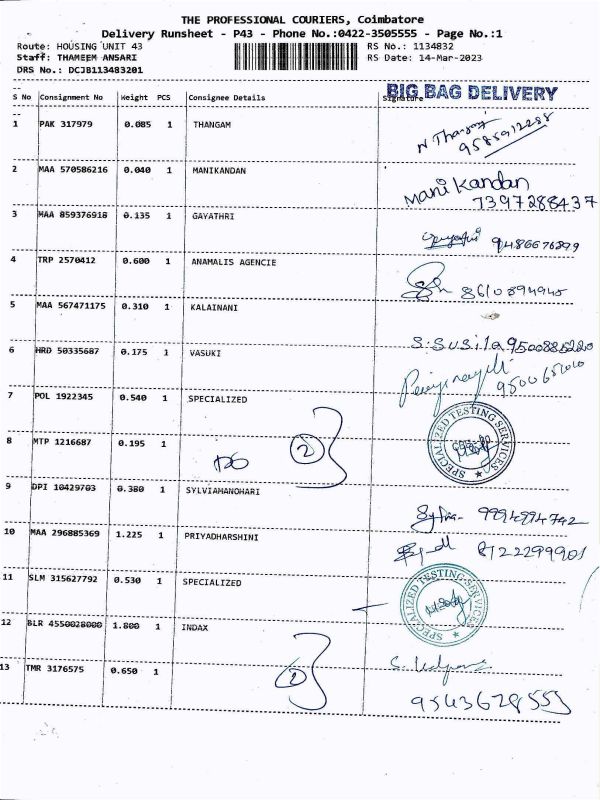 THE PROFESSIONAL COURIERS, Coimbatore
Delivery Runsheet - P43 - Phone No.:0422-3505555 - Page No.:1
Route: HOUSING UNIT 43 RS No.: 1134832
Staff: THAMEEM ANSARI RS Date: 14-Mar-2023
DRS No.: DCJB113483201
BIG BAG DELIVERY
S No Consignment No Weight PCS Consignee Details Signature
1 PAK 317979 0.085 1 THANGAM
9585912288
2 MAA 570586216 0.040 1 MANIKANDAN Manikandan
7397288437
3 MAA 859376918 0.135 1 GAYATHRI
9486676899
4 TRP 2570412 0.600 1 ANAMALIS AGENCIE 8610894940
5 MAA 567471175 0.310 1 KALAINANI
S.Susila 9500885220
6 HRD 50335687 0.175 1 VASUKI
7 POL 1922345 0.540 1 SPECIALIZED
SPECIALIZED TESTING SERVICES
8 MTP 1216687 0.195 1 DO 2
9 DPI 10429703 0.380 1 SYLVIAMANOHARI
9994994742
10 MAA 296885369 1.225 1 PRIYADHARSHINI 8122299901
11 SLM 315627792 0.530 1 SPECIALIZED
SPECIALIZED TESTING SERVICES
12 BLR 4550028000 1.800 1 INDAX
13 TMR 3176575 0.650 1 2
9543628553